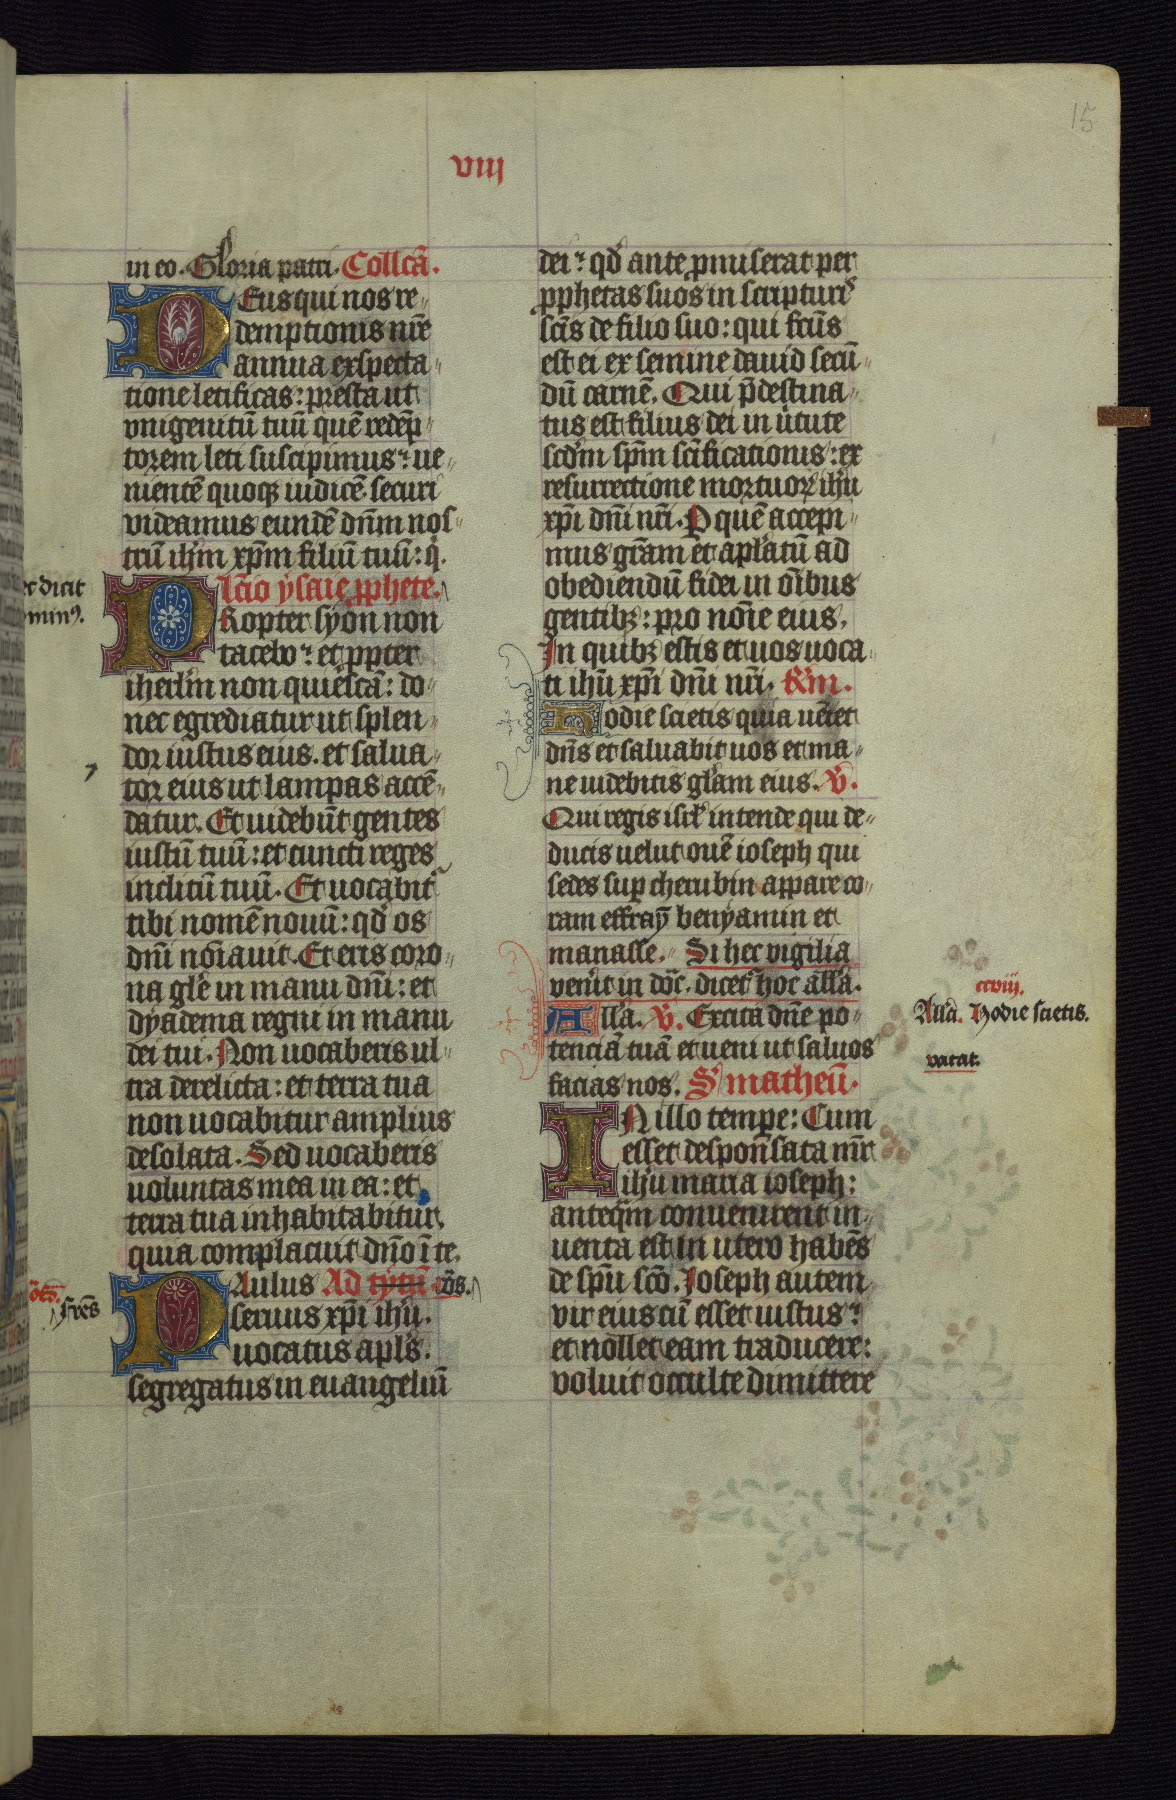 15
viii
in eo. Gloria patri. Collcā.
DEus qui nos re
demptionis nr̄e
annua exspecta
tione letificas: presta ut
vnigenitū tuū quē redēp
torem leti suscipimus: ue
nientē quoqꝫ iudicē securi
videamus eundē dn̄m nos
trū ihm̄ xp̄m filiū tuū: q̄.
Lcīo ysaie ꝓphete.
PRopter syon non
tacebo: et ꝓpter
iherl̄m non quiescā: do
nec egrediatur ut splen
dor iustus eius. et salua
tor eius ut lampas accē
datur. Et uidebūt gentes
iustū tuū: et cuncti reges
inclitū tuū. Et uocabit̄
tibi nomē nouū: qd̄ os
dn̄i noīauit. Et eris coro
na gl̄e in manu dn̄i: et
dyadema regni in manu
dei tui. Non uocaberis ul
tra derelicta: et terra tua
non uocabitur amplius
desolata. Sed uocaberis
uoluntas mea in ea: et
terra tua inhabitabitur,
quia complacuit dn̄o ī te.
PAulus Ad tytū rōs.
seruus xp̄i ihū.
uocatus apl̄s.
segregatus in euangeliū
dei: qd̄ ante ꝓmiserat per
ꝓphetas suos in scripturis
scīs de filio suo: qui fcūs
est ei ex semine dauid secū
dū carnē. Qui p̄destina
tus est filius dei in uirtute
scdm̄ sp̄m scīficationis: ex
resurrectione mortuoꝝ ihū
xp̄i dn̄i nr̄i. P quē accepi
mus gr̄am et apl̄atū ad
obediendū fidei in oībus
gentibꝫ: pro noīe eius.
In quibꝫ estis et uos uoca
ti ihū xp̄i dn̄i nr̄i.
Hodie scietis quia ueīet
dn̄s et saluabit uos et ma
ne uidebitis gl̄am eius. V̄.
Qui regis isrl̄ intende qui de
ducis uelut ouē ioseph qui
sedes sup cherubin appare co
ram effraȳ benyamin et
manasse. Si hec vigilia
venīt in dōc. dicet̄ hoc all̄a.
All̄a. V̄. Excita dn̄e po
tenciā tuā et ueni ut saluos
facias nos. S matheū.
IN illo tempe: Cum
esset desponsata mr̄
ihū maria ioseph:
anteqm̄ conuenirent in
uenta est in utero habēs
de sp̄u scō. Ioseph autem
vir eius cū esset iustus:
et nollet eam traducere:
voluit occulte dimittere
dicit
frēs
ccviij.
All̄a. Hodie scietis.
vacat.